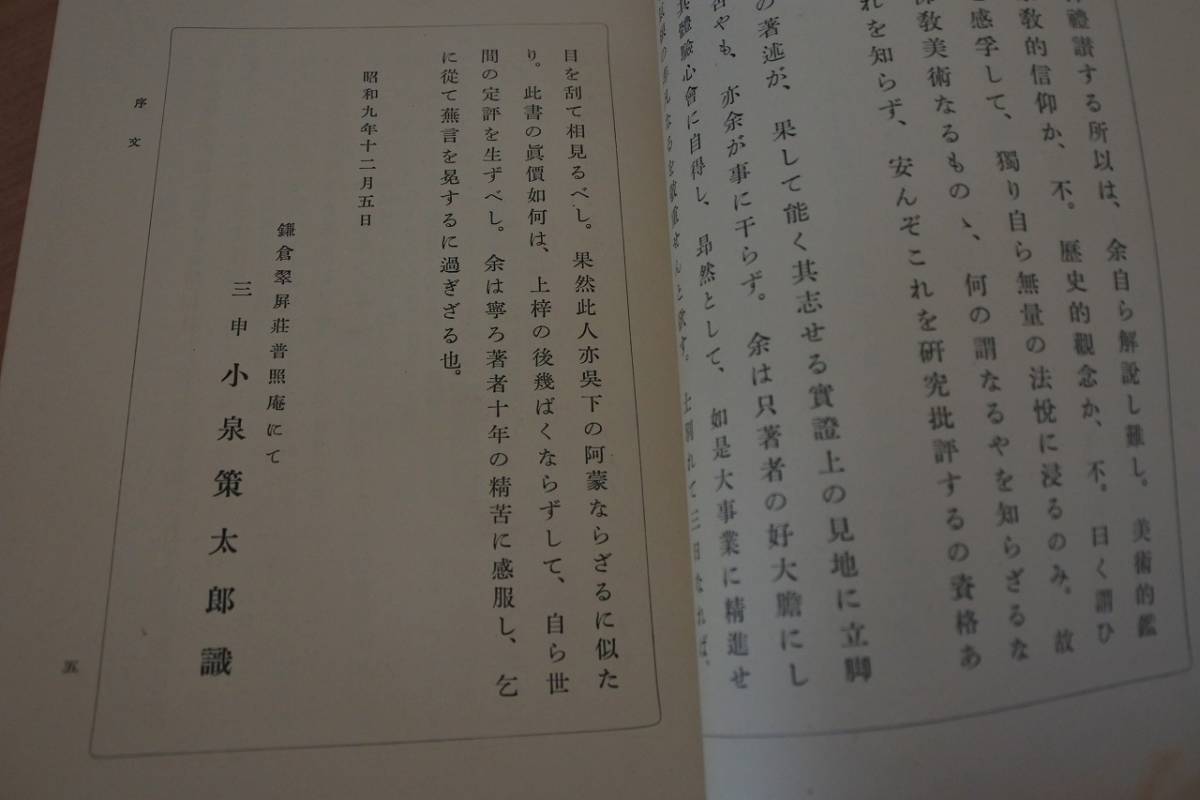 禮讃する所以は、余自ら解説し難し。美術的鑑
教的信仰か、不。歷史的觀念か、不。曰く謂ひ
感孚して、獨り自ら無量の法悅に浸るのみ。故
敎美術なるものゝ、何の謂なるやを知らざるな
れを知らず、安んぞこれを硏究批評するの資格あ
の著述が、果して能く其志せる實證上の見地に立脚
やも、亦余が事に干らず。余は只著者の好大膽にし
體驗心會に自得し、昻然として、如是大事業に精進せ
士別れて三日なれば、
目を刮て相見るべし。果然此人亦吳下の阿蒙ならざるに似た
り。此書の眞價如何は、上梓の後幾ばくならずして、自ら世
間の定評を生ずべし。余は寧ろ著者十年の精苦に感服し、乞
に從て蕪言を冕するに過ぎざる也。
昭和九年十二月五日
鎌倉翠屛莊普照庵にて
三申 小泉策太郎識
序文
五